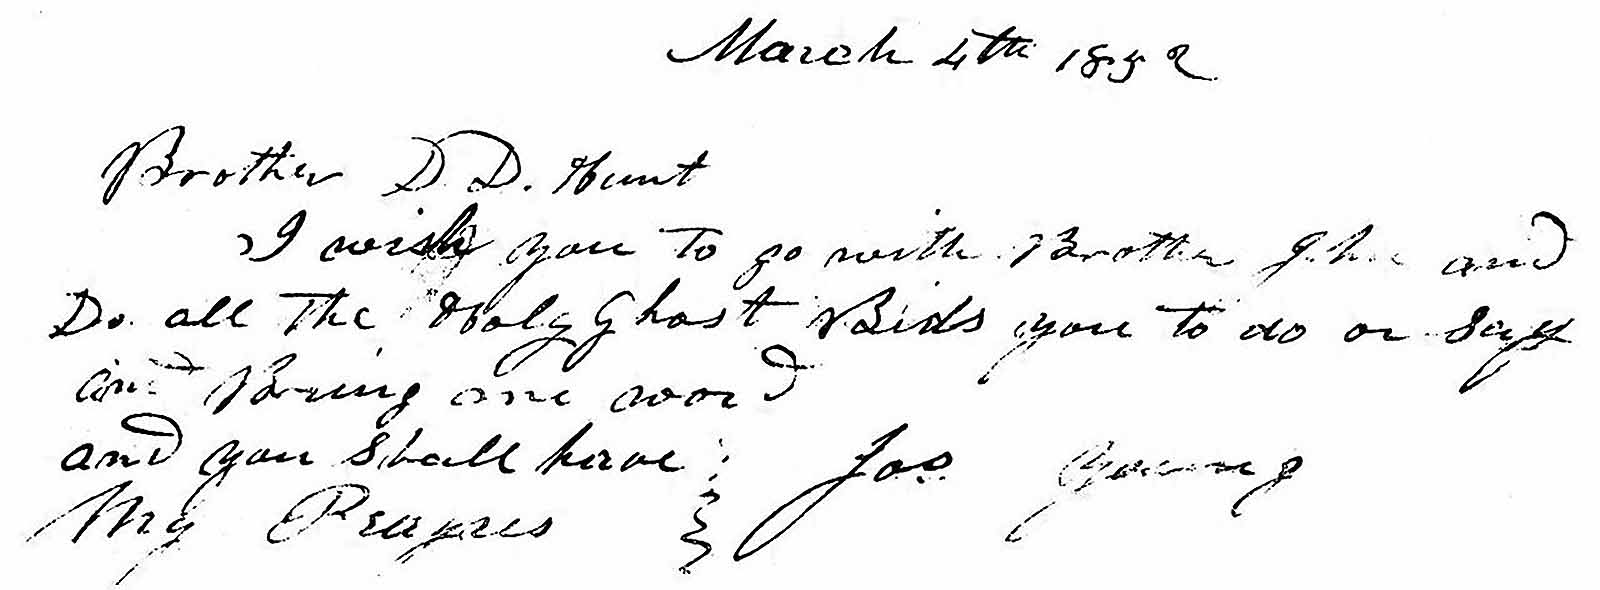 March 4th 1852
Brother D. D. Hunt
I wish you to go with Brother and
Do all The Holy Ghost Bids you to do or Say
and Bring me word
and you Shall have
My Prayres
Jos. Young